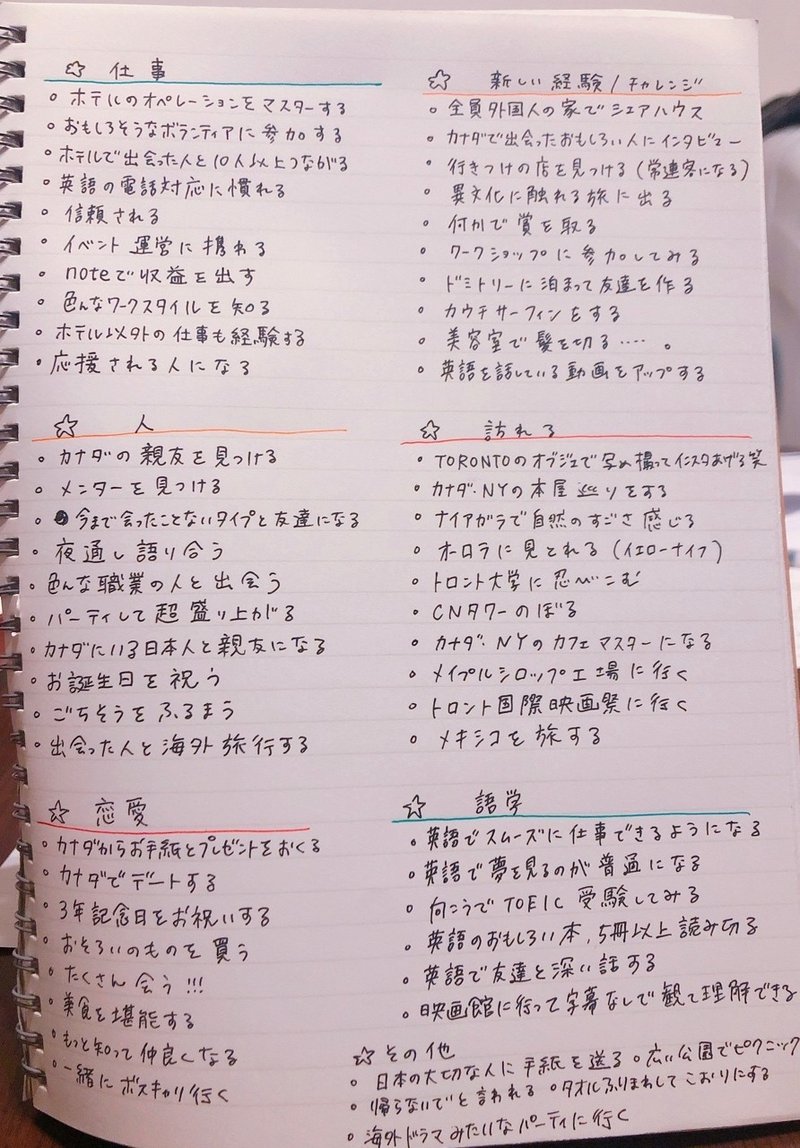 ☆ 仕事
・ホテルのオペレーションをマスターする
・おもしろそうなボランティアに参加する
・ホテルで出会った人と10人以上つながる
・英語の電話対応に慣れる
・信頼される
・イベント運営に携わる
・noteで収益を出す
・色んなワークスタイルを知る
・ホテル以外の仕事も経験する
・応援される人になる
☆ 人
・カナダの親友を見つける
・メンターを見つける
・今まで会ったことないタイプと友達になる
・夜通し語り合う
・色んな職業の人と出会う
・パーティして超盛り上がる
・カナダにいる日本人と親友になる
・お誕生日を祝う
・ごちそうをふるまう
・出会った人と海外旅行する
☆ 恋愛
・カナダからお手紙とプレゼントをおくる
・カナダでデートする
・3年記念日をお祝いする
・おそろいのものを買う
・たくさん会う!!!
・美食を堪能する
・もっと知って仲良くなる
・一緒にボスキャリ行く
☆ 新しい経験/チャレンジ
・全員外国人の家でシェアハウス
・カナダで出会ったおもしろい人にインタビュー
・行きつけの店を見つける(常連客になる)
・異文化に触れる旅に出る
・何かで賞を取る
・ワークショップに参加してみる
・ドミトリーに泊まって友達を作る
・カウチサーフィンをする
・美容室で髪を切る…。
・英語を話している動画をアップする
☆ 訪れる
・TORONTOのオブジェで写め撮ってインスタあげる笑
・カナダ・NYの本屋巡りをする
・ナイアガラで自然のすごさ感じる
・オーロラに見とれる(イエローナイフ)
・トロント大学に忍びこむ
・CNタワーのぼる
・カナダ・NYのカフェマスターになる
・メイプルシロップ工場に行く
・トロント国際映画祭に行く
・メキシコを旅する
☆ 語学
・英語でスムーズに仕事できるようになる
・英語で夢を見るのが普通になる
・向こうでTOEIC受験してみる
・英語のおもしろい本、5冊以上読み切る
・英語で友達と深い話する
・映画館に行って字幕なしで観て理解できる
☆ その他
・日本の大切な人に手紙を送る ・広い公園でピクニック
・帰らないでと言われる ・タオルふりまわしてこおりにする
・海外ドラマみたいなパーティに行く